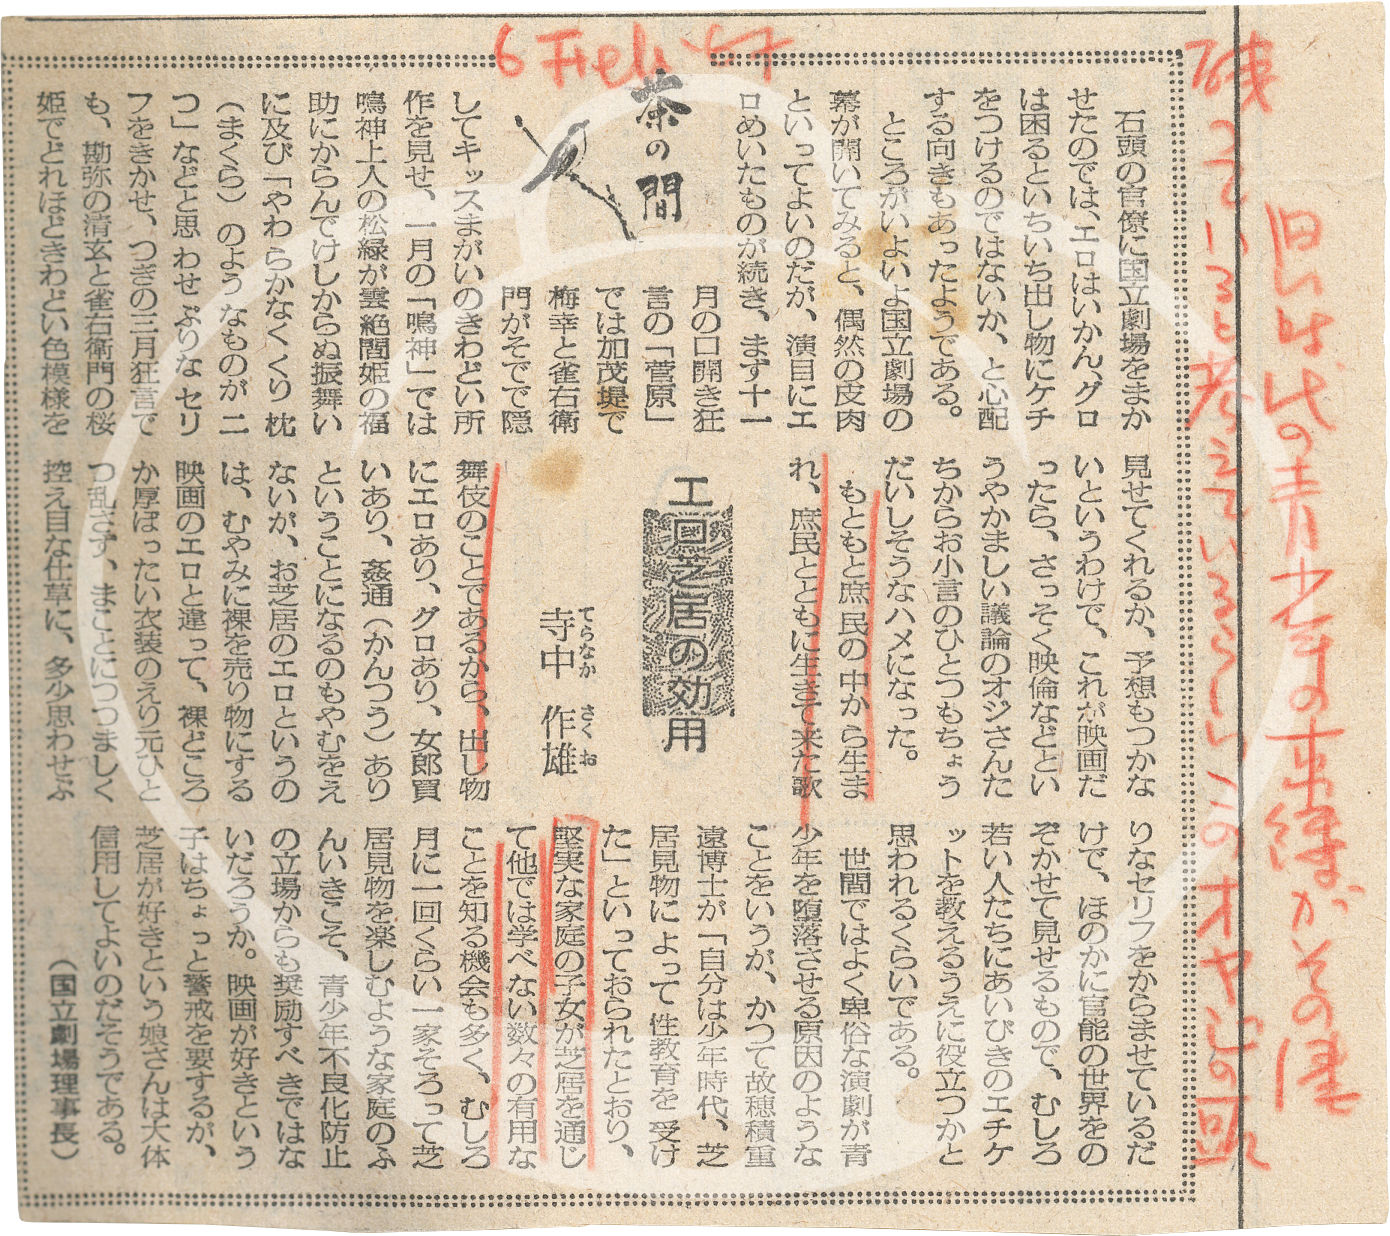 6 Feb '67
旧い時代の青少年の事績がその儘
残っていると考えているらしいこのオヤジの頭
茶の間
石頭の官僚に国立劇場をまか
せたのでは、エロはいかん、グロ
は困るといちいち出し物にケチ
をつけるのではないか、と心配
する向きもあったようである。
ところがいよいよ国立劇場の
幕が開いてみると、偶然の皮肉
といってよいのだが、演目にエ
ロめいたものが続き、まず十一
月の口開き狂
言の「菅原」
では加茂堤で
梅幸と雀右衛
門がそでで隠
してキッスまがいのきわどい所
作を見せ、一月の「鳴神」では
鳴神上人の松緑が雲絶間姫の福
助にからんでけしからぬ振舞い
に及び「やわらかなくくり枕
（まくら）のようなものが二
つ」などと思わせぶりなセリ
フをきかせ、つぎの三月狂言で
も、勘弥の清玄と雀右衛門の桜
姫でどれほどきわどい色模様を
見せてくれるか、予想もつかな
いというわけで、これが映画だ
ったら、さっそく映倫などとい
うやかましい議論のオジさんた
ちからお小言のひとつもちょう
だいしそうなハメになった。
もともと庶民の中から生ま
れ、庶民とともに生きて来た歌
エロ芝居の効用
てらなか さくお
寺中 作雄
舞伎のことであるから、出し物
にエロあり、グロあり、女郎買
いあり、姦通（かんつう）あり
ということになるのもやむをえ
ないが、お芝居のエロというの
は、むやみに裸を売り物にする
映画のエロと違って、裸どころ
か厚ぼったい衣装のえり元ひと
つ乱さず、まことにつつましく
控え目な仕草に、多少思わせぶ
りなセリフをからませているだ
けで、ほのかに官能の世界をの
ぞかせて見せるもので、むしろ
若い人たちにあいびきのエチケ
ットを教えるうえに役立つかと
思われるくらいである。
世間ではよく卑俗な演劇が青
少年を堕落させる原因のような
ことをいうが、かつて故穂積重
遠博士が「自分は少年時代、芝
居見物によって性教育を受け
た」といっておられたとおり、
堅実な家庭の子女が芝居を通じ
て他では学べない数々の有用な
ことを知る機会も多く、むしろ
月に一回くらい一家そろって芝
居見物を楽しむような家庭のふ
んいきこそ、青少年不良化防止
の立場からも奨励すべきではな
いだろうか。映画が好きという
子はちょっと警戒を要するが、
芝居が好きという娘さんは大体
信用してよいのだそうである。
（国立劇場理事長）